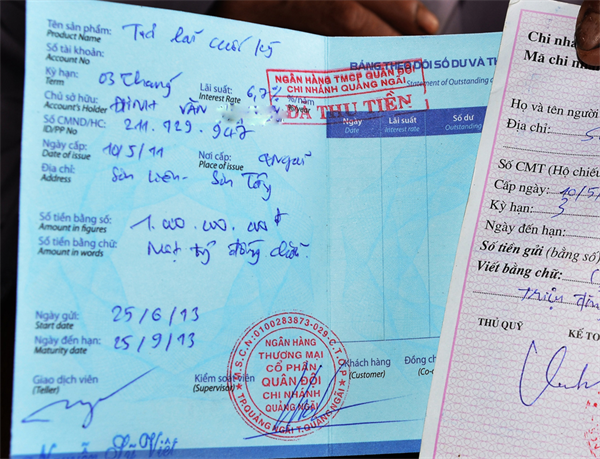 Tên sản phẩm: Trả lãi cuối kỳ
Product Name
Số tài khoản:
Account No
Kỳ hạn: 03 tháng Lãi suất: 6,7 %/năm
Term Interest Rate
Chủ sở hữu: ĐINH VĂN
Account's Holder
Số CMND/HC: 211.729.947
ID/PP No
Ngày cấp: 10/5/11 Nơi cấp: QNgãi
Date of issue Place of issue
Địa chỉ: Sơn Liên - Sơn Tây
Address
Số tiền bằng số: 1.000.000.000đ
Amount in figures
Số tiền bằng chữ: Một tỷ đồng chẵn.
Amount in words
Ngày gửi: 25/6/13
Start date
Ngày đến hạn: 25/9/13
Maturity date
Giao dịch viên Kiểm soát viên
(Teller) (Supervisor)
BẢNG THEO DÕI SỐ DƯ VÀ TH
Statement of Outstanding
NGÂN HÀNG TMCP QUÂN ĐỘI
CHI NHÁNH QUẢNG NGÃI
ĐÃ THU TIỀN
Ngày Lãi suất Số dư
Date Interest rate Outstanding
M.S.C.N:0100283873-029-C.T.C.P
NGÂN HÀNG
THƯƠNG MẠI
CỔ PHẦN
QUÂN ĐỘI
CHI NHÁNH
QUẢNG NGÃI
TP.QUẢNG NGÃI T.QUẢNG NGÃI
Khách hàng Đồng ch
(Customer) (Co-
Chi nhá
Mã chi n
Họ và tên người
Địa chỉ:
Số CMT (Hộ chiếu
Cấp ngày: 10/5/
Kỳ hạn: 3
Ngày đến hạn:
Số tiền gửi (bằng số)
Viết bằng chữ:
triệu đồn
THỦ QUỸ KẾ TO